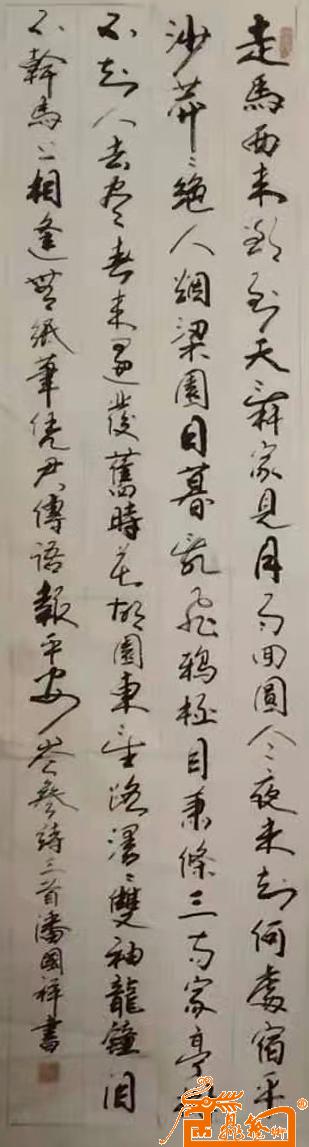 走馬西来欲到天辭家見月两回圓今夜未知何處宿平
沙莽々絶人烟梁園日暮亂飛鴉極目蕭條三两家亭樹
不知人去尽春来還發舊時花故園東望路漫々雙袖龍鐘泪
不幹馬上相逢無紙筆凭君傳語報平安岑參詩三首潘國祥書